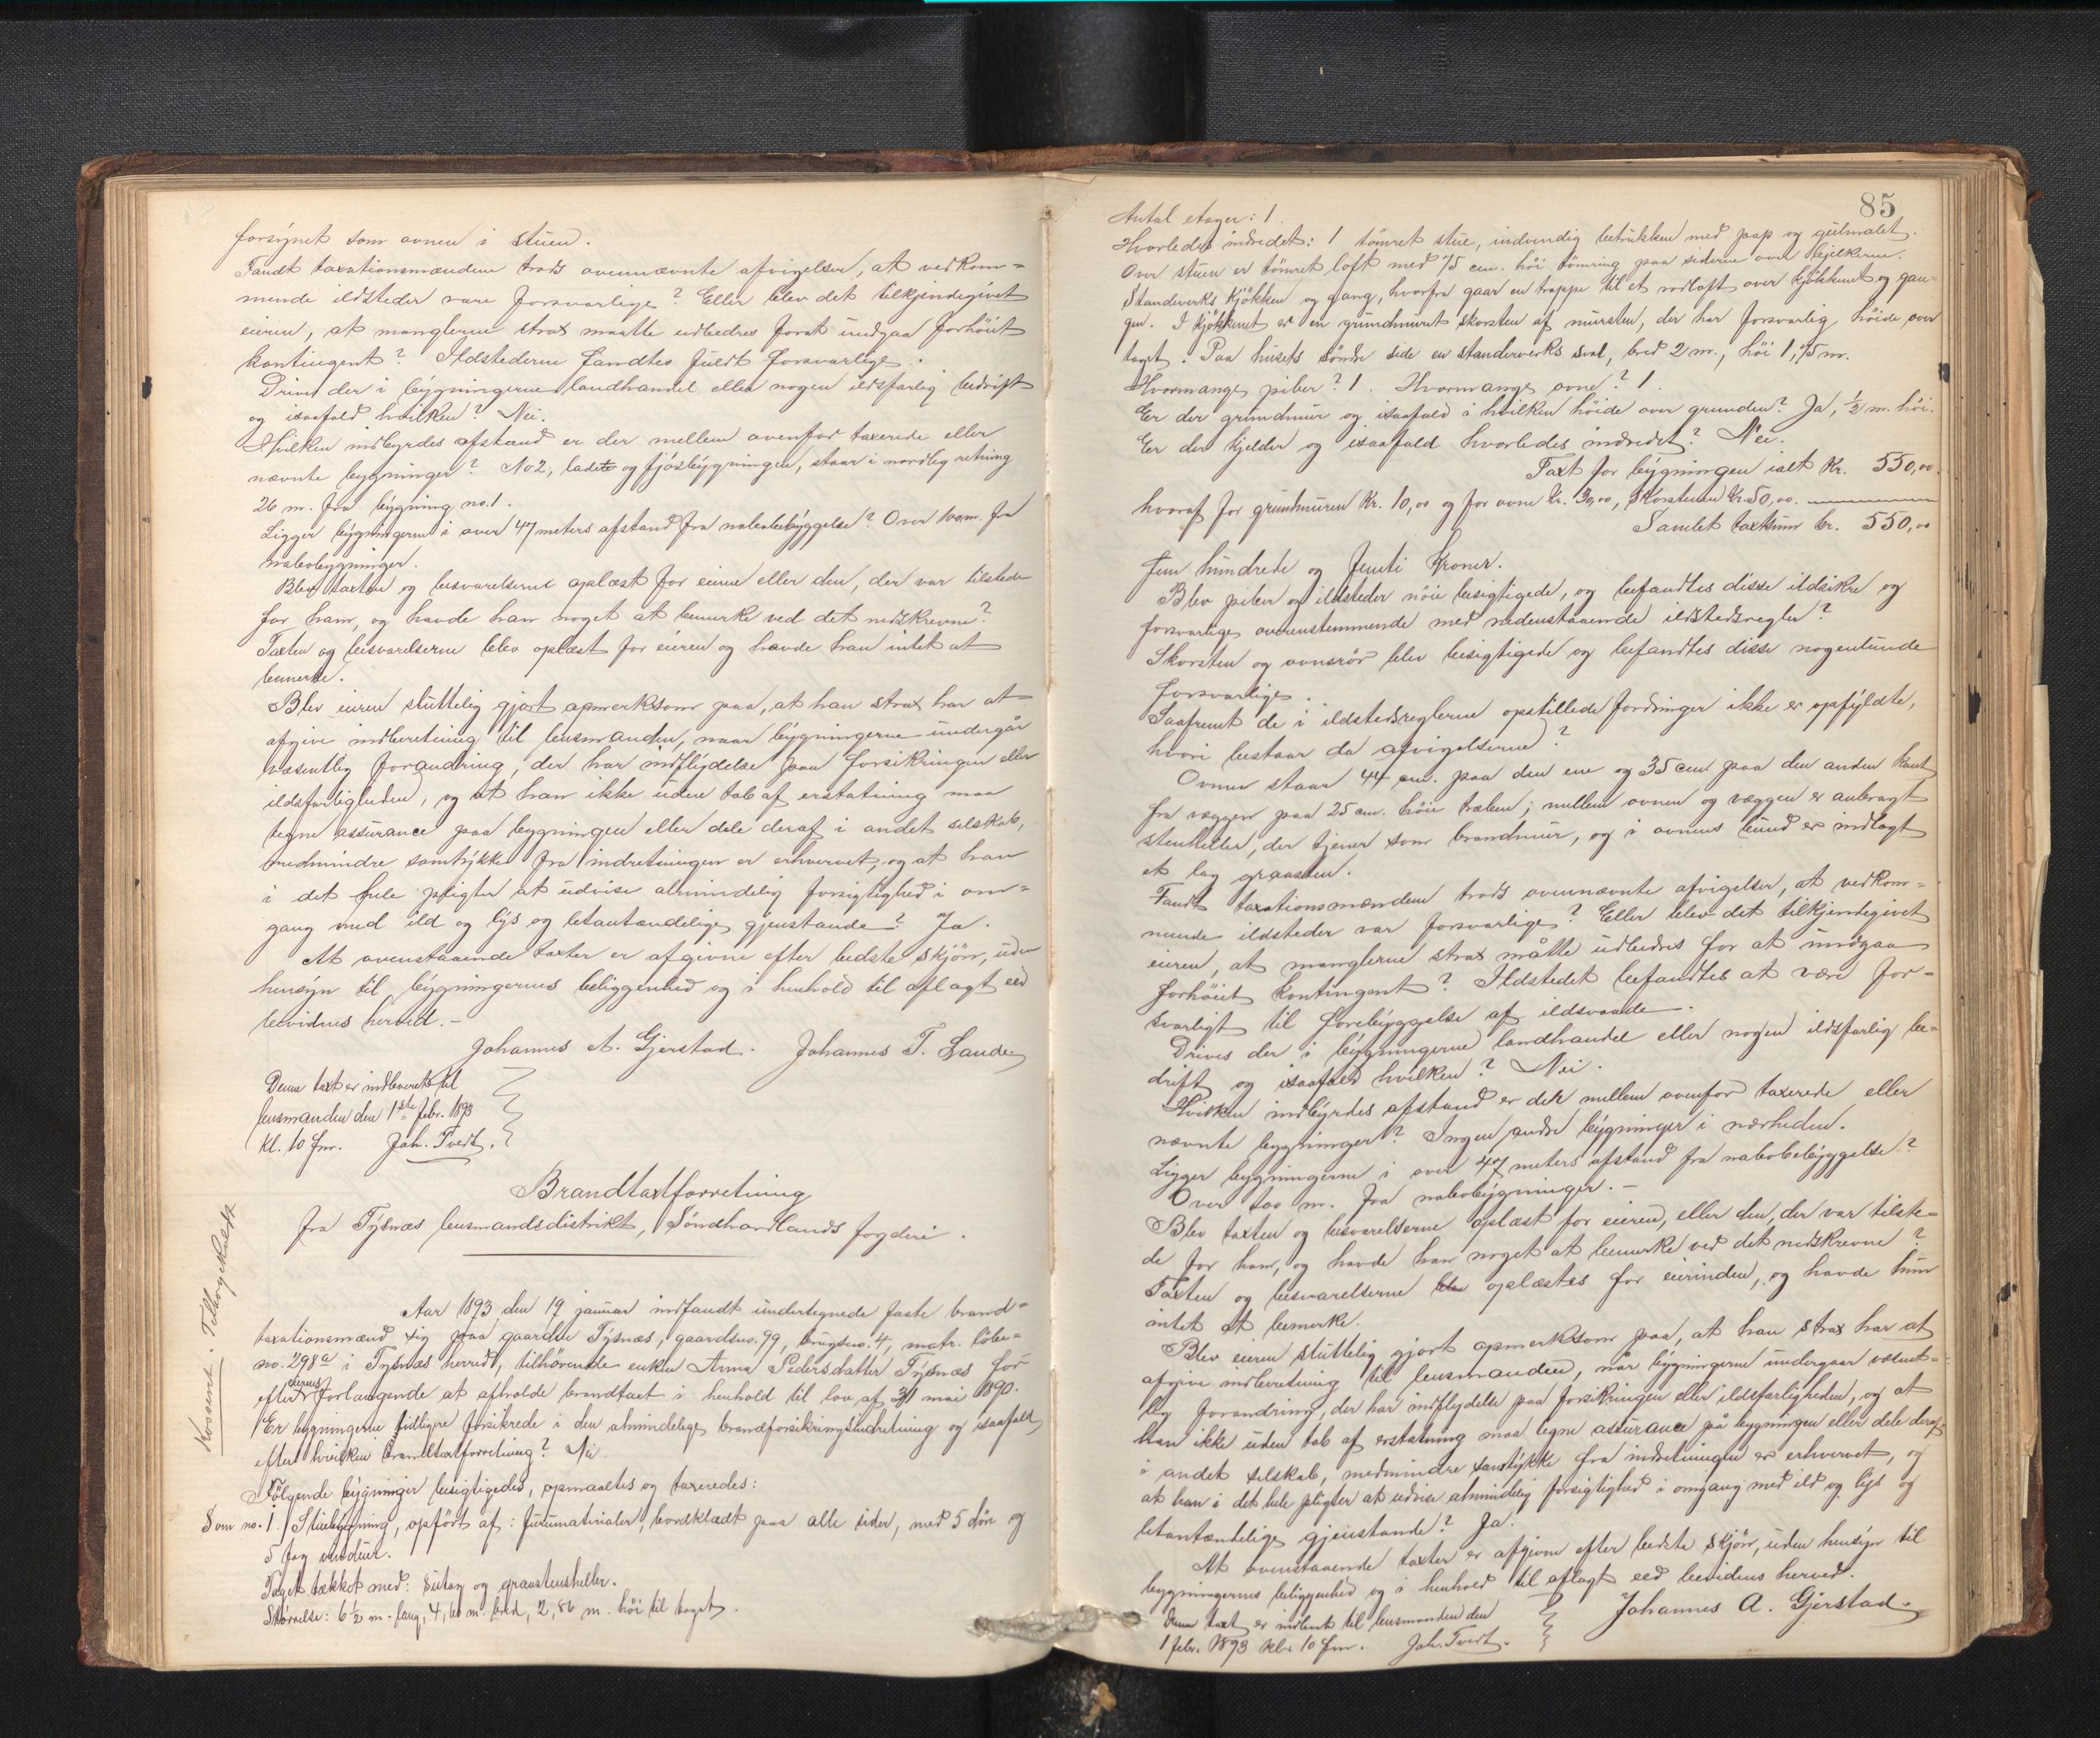 forsynet som ovnen i stuen.
Fandt taxationsmændene trods ovennævnte afvigelser, at vedkom=
mende ildsteder vare forsvarlige? Eller blev det tilkjendegivet
eieren, at manglerne strax maatte udbedres forat undgaa forhöiet
kontingent? Ildstederne fandtes fuldt forsvarlige.
Drives der i bygningerne landhandel eller nogen ildsfarlig bedrift
og isaafald hvilken? Nei.
Hvilken indbyrdes afstand er der mellem ovenfor taxerede eller
nævnte bygninger? No 2, lade og fjösbygningen, staar i nordlig retning
26 m. fra bygning no. 1.
Ligger bygningerne i over 47 meters afstand fra nabobebyggelse? Over 100 m. fra
nabobygninger.
Blev taxten og besvarelserne oplæst for eieren eller den, der var tilstede
for ham, og havde han noget at bemerke ved det nedskrevne?
Taxten og besvarelserne blev oplæst for eieren og havde han intet at
bemerke.
Blev eieren sluttelig gjort opmerksom paa, at han strax har at
afgive indberetning til lensmanden, naar bygningerne undergår
væsentlig forandring, der har indflydelse paa forsikringen eller
ildsfarligheden, og at han ikke uden tab af erstatning maa
tegne assurance paa bygningen eller dele deraf i andet selskab,
medmindre samtykke fra indretningen er erhvervet, og at han
i det hele pligter at udvise almindelig forsigtighed i om=
gang med ild og lys og letantændelige gjenstande? Ja.
At ovenstaaende taxter er afgivne efter bedste skjön, uden
hensyn til bygningernes beliggenhed og i henhold til aflagt eed
bevidnes herved.-
Johannes A. Gjerstad. Johannes T. Lande
Denne taxt er indleveret til
lensmanden den 1ste febr. 1893
kl. 10 fm. Joh. Tvedt.
Brandtaxtforretning
fra Tysnæs lensmandsdistrikt, Söndhordlands fogderi.
Konsent. Tilbagekaldt
Aar 1893 den 19 januar indfandt undertegnede faste brand=
taxationsmænd sig paa gaarden Tysnæs, gaardsno. 99, brugsno. 4, matr. löbe=
no. 298a i Tysnæs herred, tilhörende enken Anna Pedersdatter Tysnæs for
efter eierens forlangende at afholde brandtaxt i henhold til lov af 31 mai 1890.
Er bygningerne tidligere forsikrede i den almindelige brandforsikringsindretning og isaafald
efter hvilken brandtaxtforretning? Nei.
Fölgende bygninger besigtigedes, opmaaltes og taxeredes:
Som no. 1. Stuebygning, opfört af: furumaterialer, bordklædt paa alle sider, med 5 döre og
5 fag vinduer.
Taget tækket med: sutag og graastensheller.
Störrelse: 6½ m. lang, 4,60 m. bred, 2,86 m. höi til taget.
85
Antal etager: 1.
Hvorledes indredet: 1 tömret stue, indvendig betrukken med pap og gulmalet.
Over stuen er tömret loft med 75 cm. höi tömring paa siderne over bjelkerne.
Standerverks kjökken og gang, hvorfra gaar en trappe til et rodloft over kjökkenet og gan=
gen. I kjökkenet er en grundmuret skorsten af mursten, der har forsvarlig höide over
taget. Paa husets söndre side en standerverks sval, bred 2 m., höi 1,75 m.
Hvormange piber? 1. Hvormange ovne? 1.
Er der grundmur og isaafald i hvilken höide over grunden? Ja, ½ m. höi.
Er der kjelder og isaafald hvorledes indredet? Nei.
Taxt for bygningen ialt Kr. 550,00.
hvoraf for grundmuren Kr. 10,00 og for ovne Kr. 30,00, Skorstenen Kr. 50,00.
Samlet taxtsum kr. 550,00
Fem hundrede og femti Kroner.
Blev piber og ildsteder nöie besigtigede, og befandtes disse ildsikre og
forsvarlige overensstemmende med nedenstaaende ildstedsregler?
Skorsten og ovnsrör blev besigtigede og befandtes disse nogenlunde
forsvarlige.
Saafremt de i ildstedsreglerne opstillede fordringer ikke er opfyldte,
hvori bestaar da afvigelserne?
Ovnen staar 44 cm. paa den ene og 35 cm paa den anden kant
fra væggen paa 25 cm. höie træben; mellem ovnen og væggen er anbragt
stenheller, der tjener som brandmur, og i ovnens bund er indlagt
et lag graasten.
Fandt taxationsmændene trods ovennævnte afvigelser, at vedkom=
mende ildsteder var forsvarlige? Eller blev det tilkjendegivet
eieren, at manglerne strax måtte udbedres for at undgaa
forhöiet kontingent? Ildstedet befandtes at være for=
svarligt til forebyggelse af ildsvaade.
Drives der i bygningerne landhandel eller nogen ildsfarlig be=
drift og isaafald hvilken? Nei.
Hvilken indbyrdes afstand er der mellem ovenfor taxerede eller
nævnte bygninger? Ingen andre bygninger i nærheden.
Ligger bygningerne i over 47 meters afstand fra nabobebyggelse?
Over 100 m. fra nabobygninger.-
Blev taxten og besvarelserne oplæst for eieren, eller den, der var tilste=
de for ham, og havde han noget at bemerke ved det nedskrevne?
Taxten og besvarelserne blev oplæstes for eierinden, og havde hun
intet at bemerke.
Blev eieren sluttelig gjort opmerksom paa, at han strax har at
afgive indberetning til lensmanden, når bygningerne undergaar væsent=
lig forandring, der har indflydelse paa forsikringen eller ildsfarligheden, og at
han ikke uden tab af erstatning maa tegne assurance på bygningen eller dele deraf
i andet selskab, medmindre samtykke fra indretningen er erhvervet, og
at han i det hele pligter at udvise almindelig forsigtighed i omgang med ild og lys og
letantændelige gjenstande? Ja.
At ovenstaaende taxter er afgivne efter bedste skjön, uden hensyn til
bygningernes beliggenhed og i henhold til aflagt eed bevidnes herved.
Johannes A. Gjerstad.
Denne taxt er indlevt til lensmanden den
1 febr. 1893 kl. 10 fm. Joh. Tvedt.